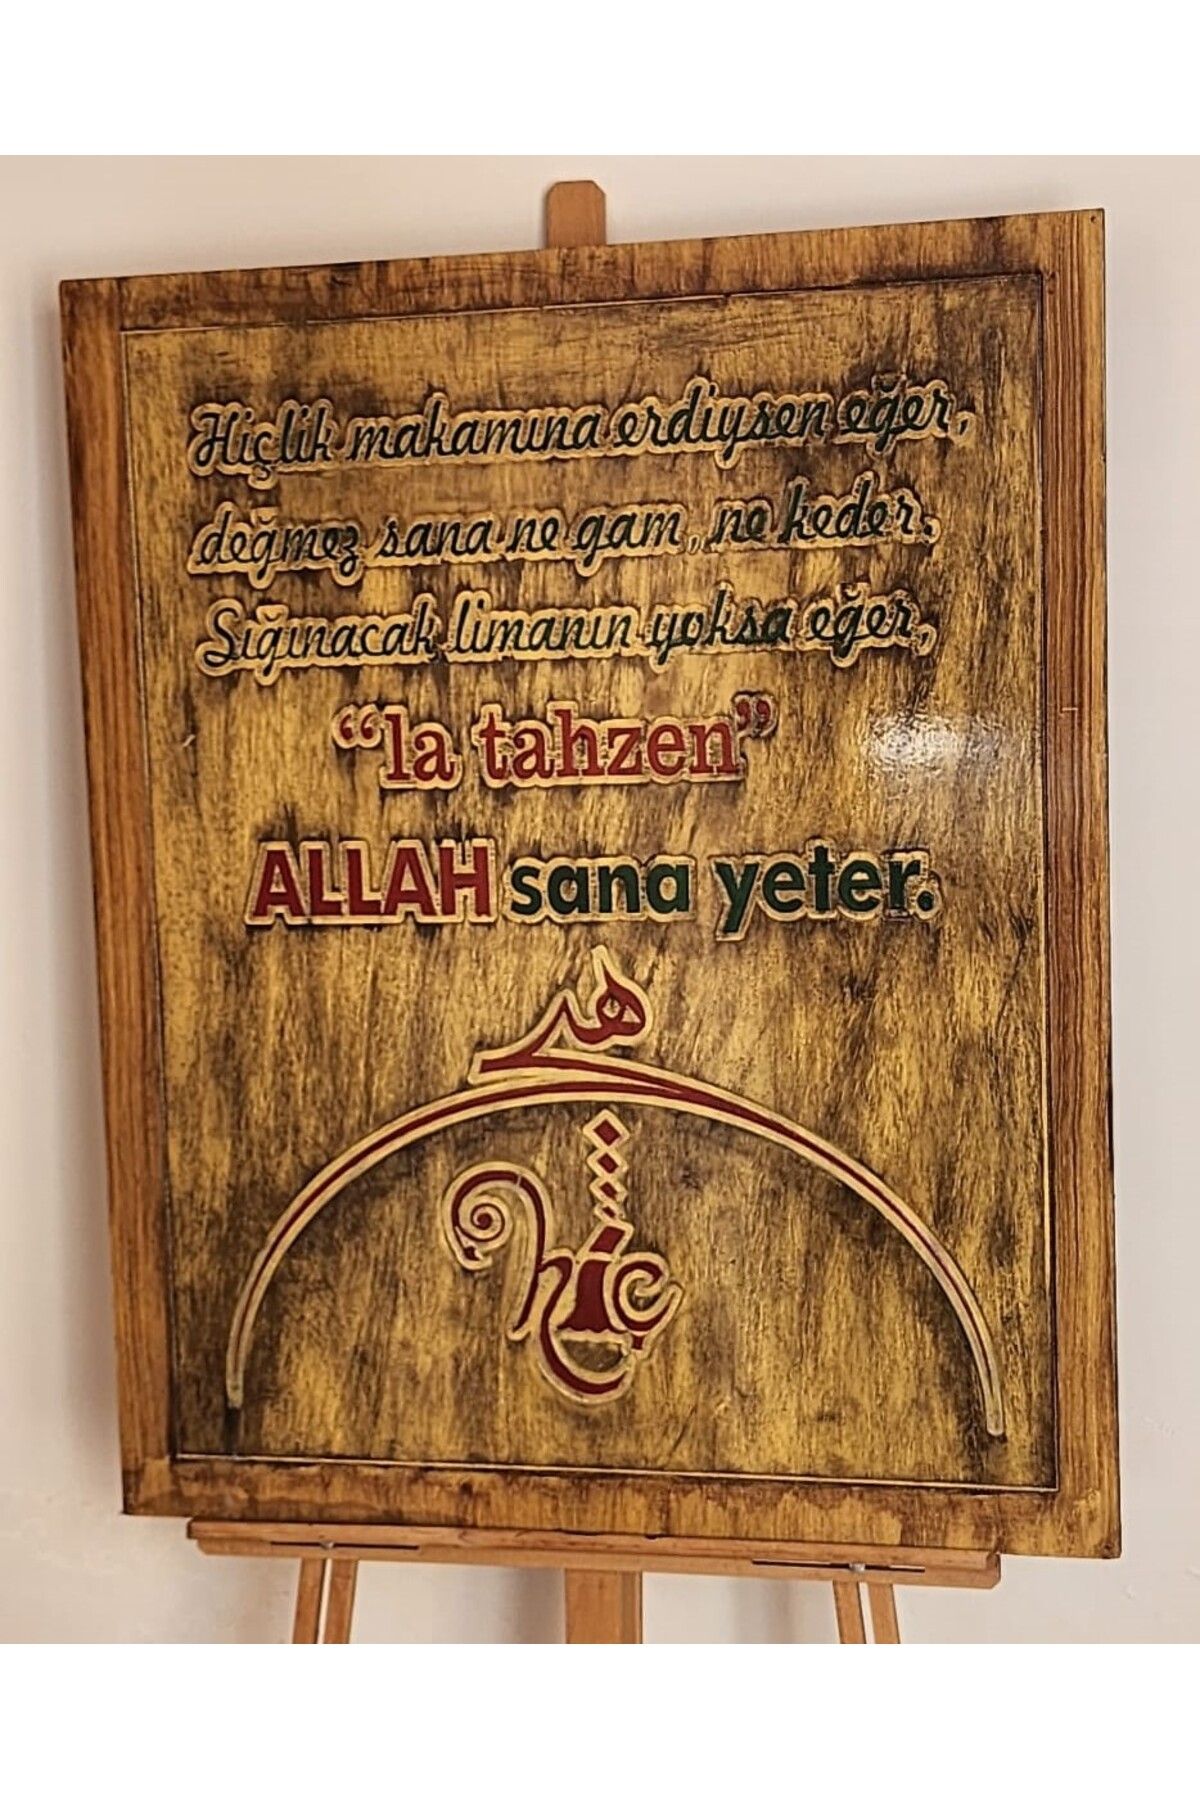 Hiçlik makamına erdiysen eğer,
değmez sana ne gam, ne keder.
Sığınacak limanın yoksa eğer,
“la tahzen”
ALLAH sana yeter.
هيچ
hiç